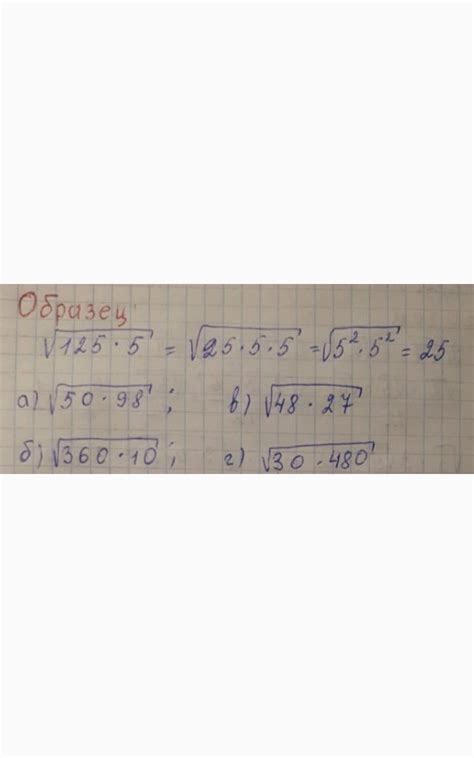 Образец
√125 · 5 = √25 · 5 · 5 = √5² · 5² = 25
а) √50 · 98 ; в) √48 · 27
б) √360 · 10 ; г) √30 · 480